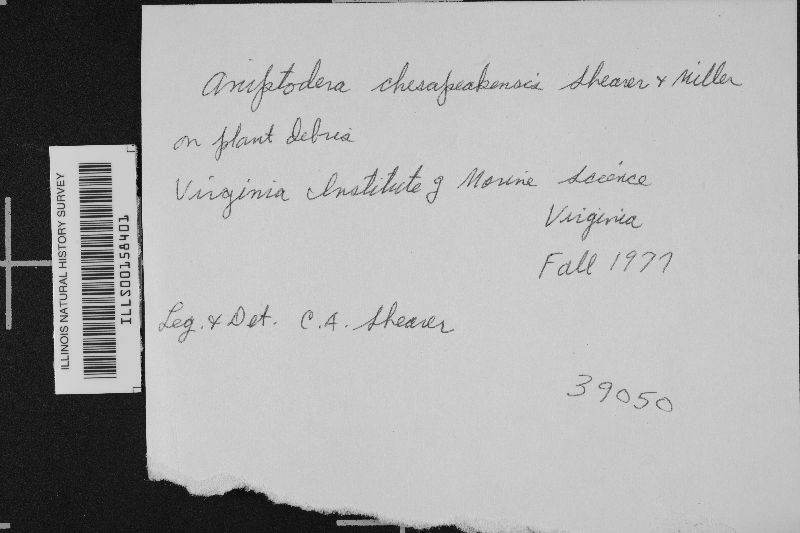 Aniptodera chesapeakensis Shearer & Miller
on plant debris
Virginia Institute of Marine Science
Virginia
Fall 1977
Leg. & Det. C.A. Shearer
39050
ILLINOIS NATURAL HISTORY SURVEY
ILLS00158401